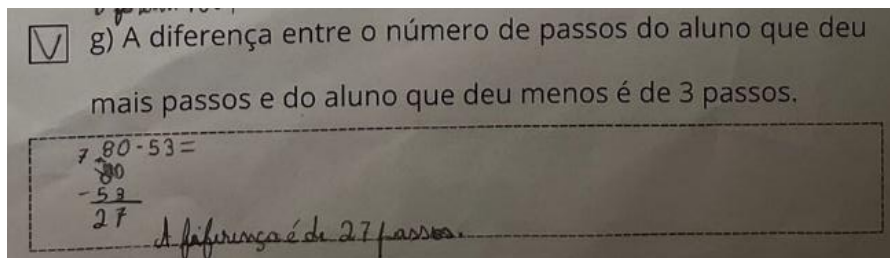 V g) A diferença entre o número de passos do aluno que deu
mais passos e do aluno que deu menos é de 3 passos.
80-53=
7
80
-53
27
A diferença é de 27 passos.